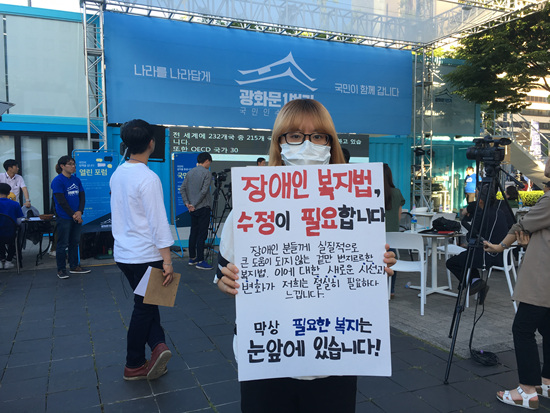 나라를 나라답게
광화문1번가
국민이 함께 갑니다
전 세계에 232개국 중 215개
니다.
또한 OECD 국가 30
열린 포럼
장애인 복지법,
수정이 필요합니다
장애인 분들께 실질적으로
큰 도움이 되지 않는 겉만 번지르르한
복지법, 이에 대한 새로운 시선과
변화가 저희는 절실히 필요하다
느낍니다.
막상 필요한 복지는
눈앞에 있습니다!